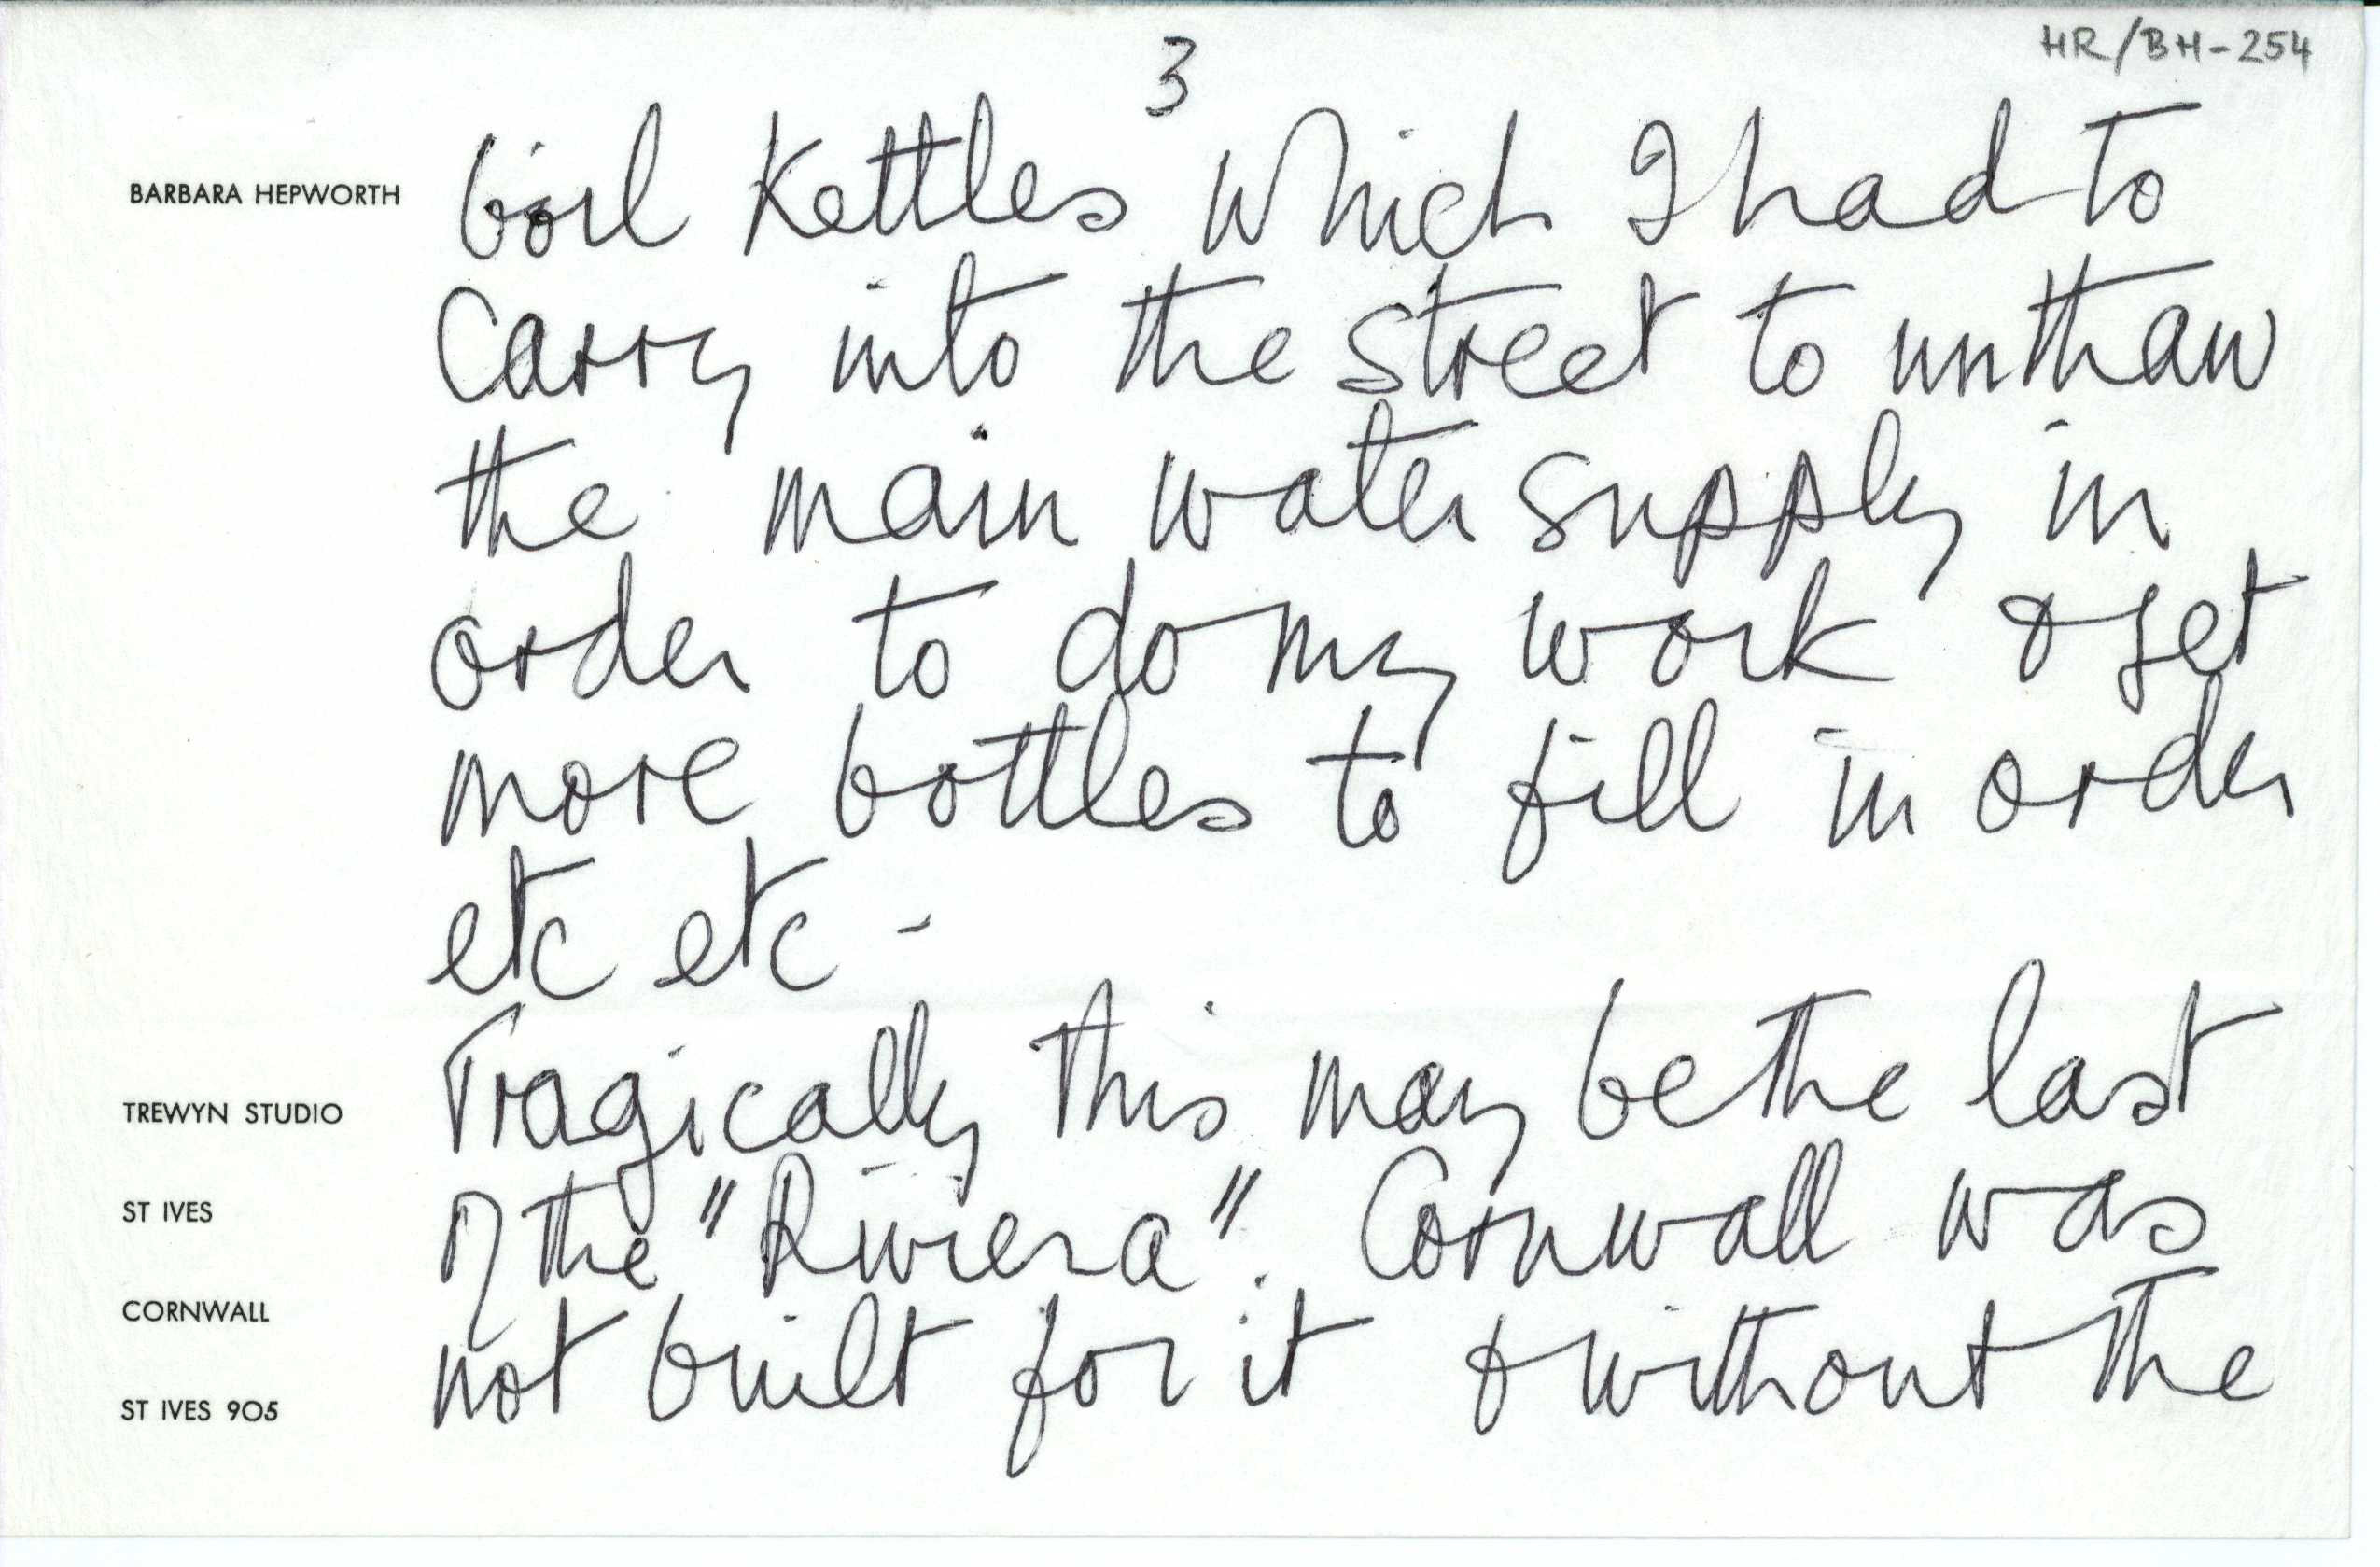 3
HR/BH-254
BARBARA HEPWORTH
boil Kettles which I had to
Carry into the street to unthaw
the main water supply in
order to do my work & get
more bottles to fill in order
etc etc -
Tragically this may be the last
of the "Riviera". Cornwall was
not built for it & without the
TREWYN STUDIO
ST IVES
CORNWALL
ST IVES 905